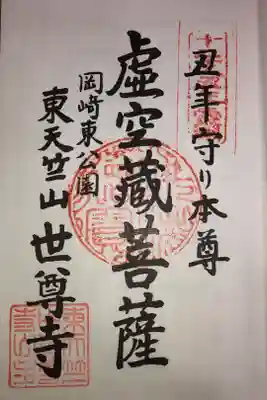 丑年守り本尊
虚空蔵菩薩
岡崎東公園
東天竺山世尊寺